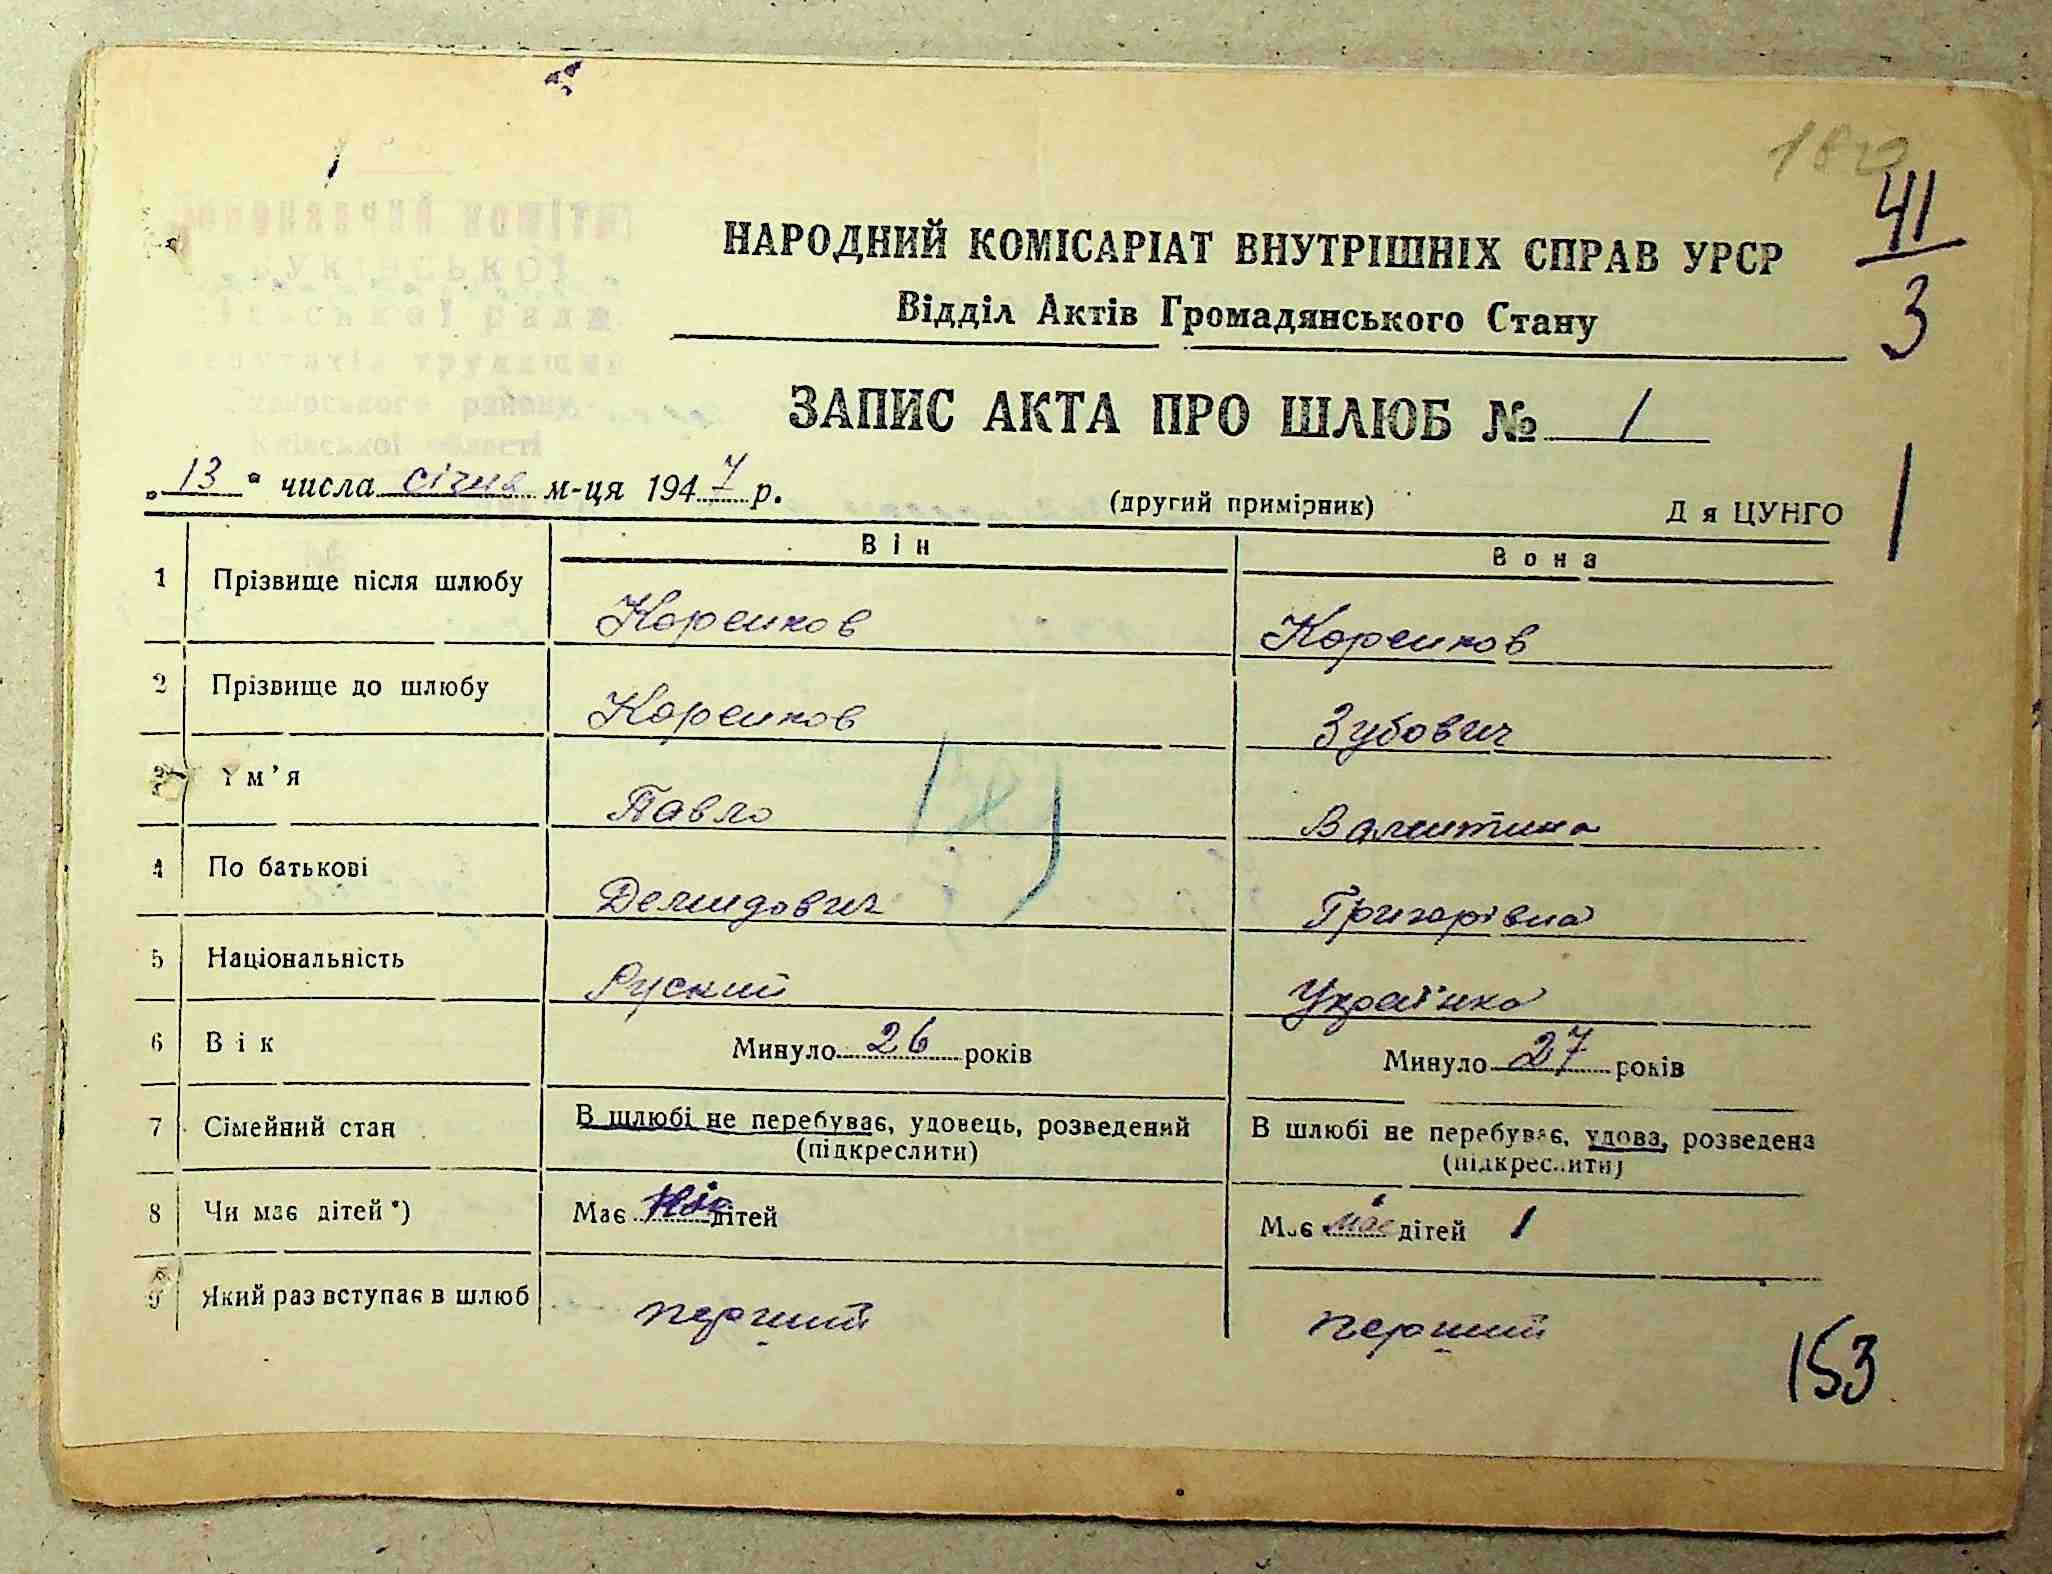 41
3
НАРОДНИЙ КОМІСАРІАТ ВНУТРІШНІХ СПРАВ УРСР
Відділ Актів Громадянського Стану
ЗАПИС АКТА ПРО ШЛЮБ № 1
„13" числа січня м-ця 1947 р. (другий примірник) Д я ЦУНГО
1
Він Вона
1 Прізвище після шлюбу Коренков Коренков
2 Прізвище до шлюбу Коренков Зубович
3 Ім'я Павло Валентина
4 По батькові Демидович Григорівна
5 Національність Руский Українка
6 Вік Минуло 26 років Минуло 27 років
7 Сімейний стан В шлюбі не перебуває, удовець, розведений В шлюбі не перебуває, удова, розведена
(підкреслити) (підкреслити)
8 Чи має дітей*) Має дітей Має має дітей 1
9 Який раз вступає в шлюб перший перший
153